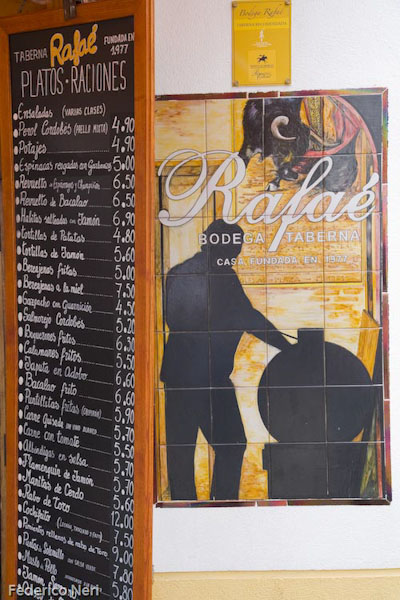 TABERNA Rafaé FUNDADA EN 1977
PLATOS · RACIONES
Ensaladas (VARIAS CLASES)
Perol Cordobés (PAELLA MIXTA) 4.90
Potajes 4.90
Espinacas 5.00
Revuelto 6.50
Revuelto de Bacalao 6.50
Habitas salteadas con Jamón 6.90
Tortillas de Patatas 4.80
Tortillas de Jamón 5.60
Berenjenas fritas 5.00
Berenjenas a la miel 7.50
Gazpacho con Guarnición 4.50
Salmorejo Cordobés 5.20
Boquerones fritos 6.30
Calamares fritos 5.50
en Adobo 6.60
Bacalao frito 6.60
Puntillitas fritas 5.90
Carne Guisada 5.70
Carne con tomate 5.50
Albóndigas en salsa 5.70
Flamenquín de Jamón 5.70
Manitas de Cerdo 5.60
Rabo de Toro 12.00
Cochifrito 7.50
Pimientos rellenos de rabo de Toro 9.00
Jamón
Bodega Rafaé
Rafaé
BODEGA TABERNA
CASA FUNDADA EN 1977
Federico Neri